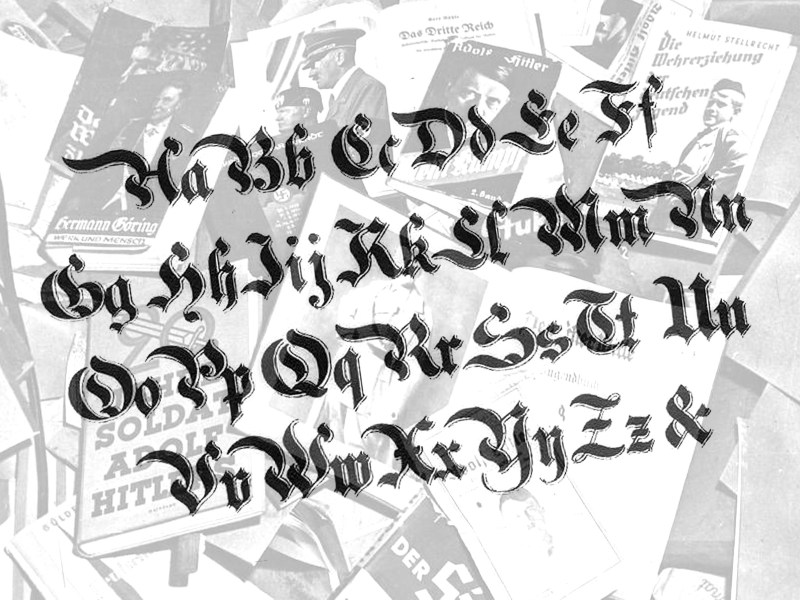 Kurt Gäßle
Das Dritte Reich
Adolf Hitler
HELMUT STELLRECHT
Die
Wehrerziehung
Aa Bb Cc Dd Ee Ff
Gg Hh Iij Kk Ll Mm Nn
Oo Pp Qq Rr Ss Tt Uu
Vv Ww Xx Yy Zz &
Hermann Göring
WERK UND MENSCH
2. Ban
SOLDAT
ADOLF
HITLERS
DER